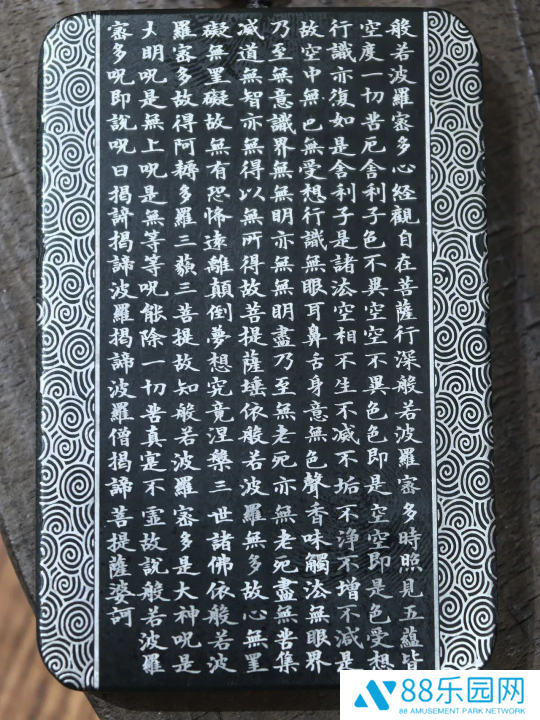 般若波羅宻多心経觀自在菩薩行深般若波羅宻多時照見五蘊皆
空度一切苦厄舎利子色不異空空不異色色即是空空即是色受想
行識亦復如是舎利子是諸法空相不生不滅不垢不淨不增不減是
故空中無色無受想行識無眼耳鼻舌身意無色聲香味觸法無眼界
乃至無意識界無無明亦無無明盡乃至無老死亦無老死盡無苦集
滅道無智亦無得以無所得故菩提薩埵依般若波羅無多故心無罣
礙無罣礙故無有恐怖遠離顛倒夢想究竟涅槃三世諸佛依般若波
羅宻多故得阿耨多羅三藐三菩提故知般若波羅宻多是大神呪是
大明呪是無上呪是無等等呪能除一切苦真寔不霊故說般若波羅
宻多呪即說呪曰揭諦揭諦波羅揭諦波羅僧揭諦菩提薩婆訶
88乐园网
88 AMUSEMENT PARK NETWORK